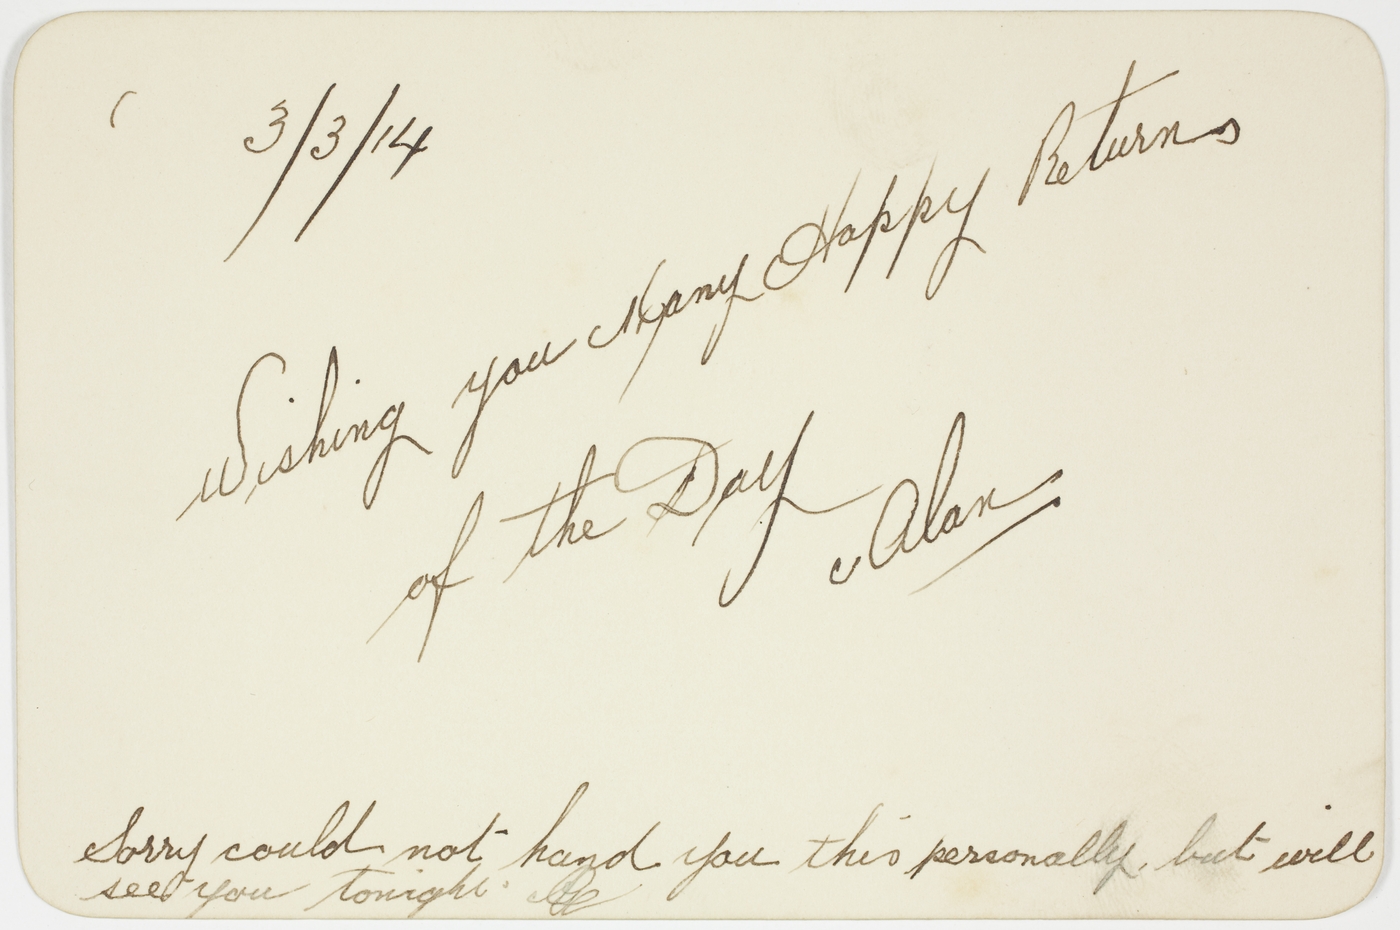 3/3/14
Wishing you Many Happy Returns
of the Day
Alan
Sorry could not hand you this personally, but will
see you tonight.